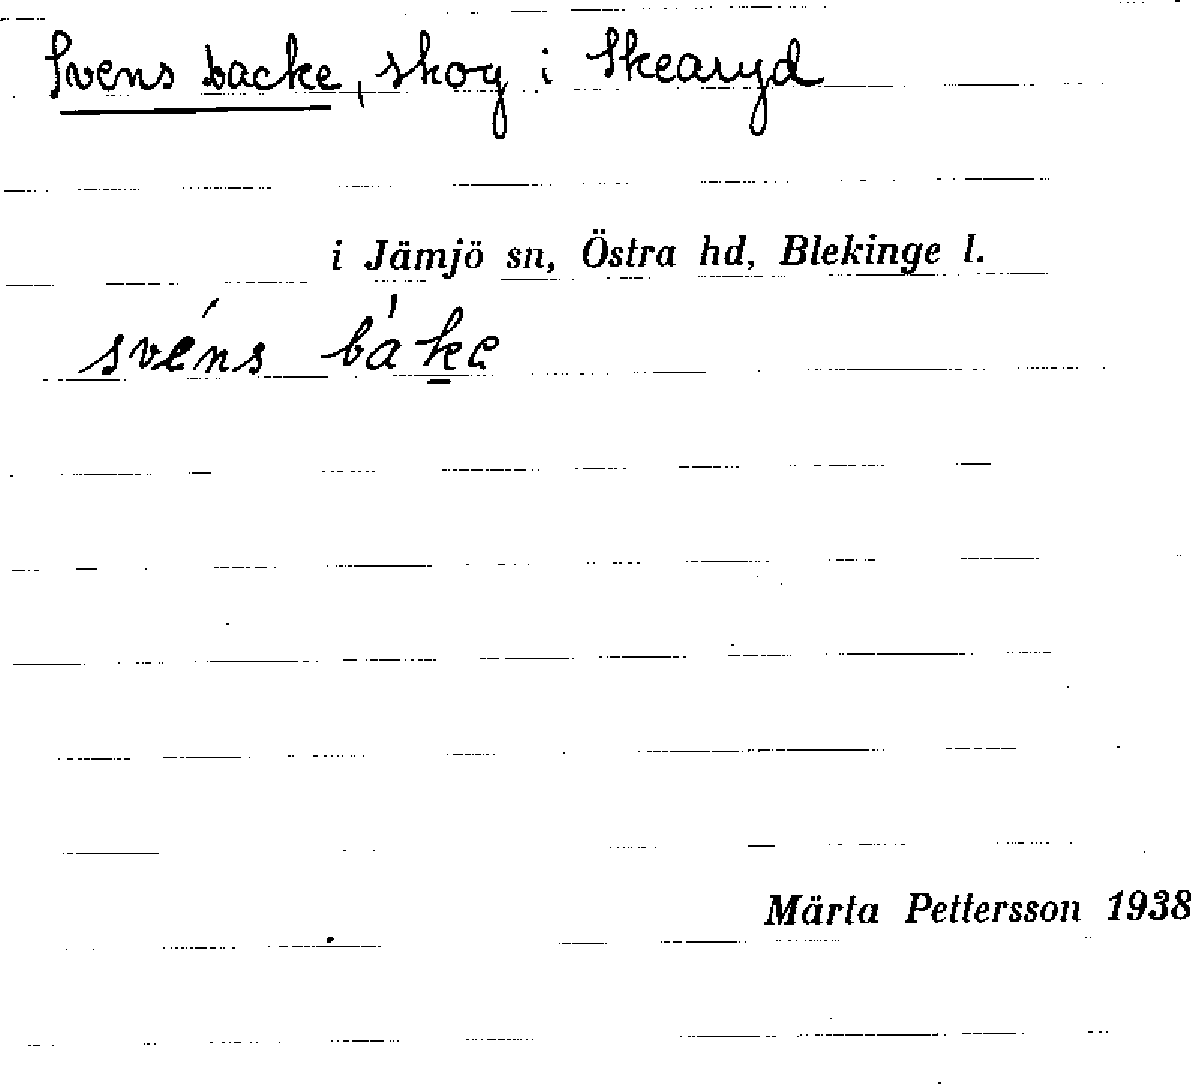 Svens backe, skog i Skearyd
i Jämjö sn, Östra hd, Blekinge l.
svéns bák̲e
Märta Pettersson 1938